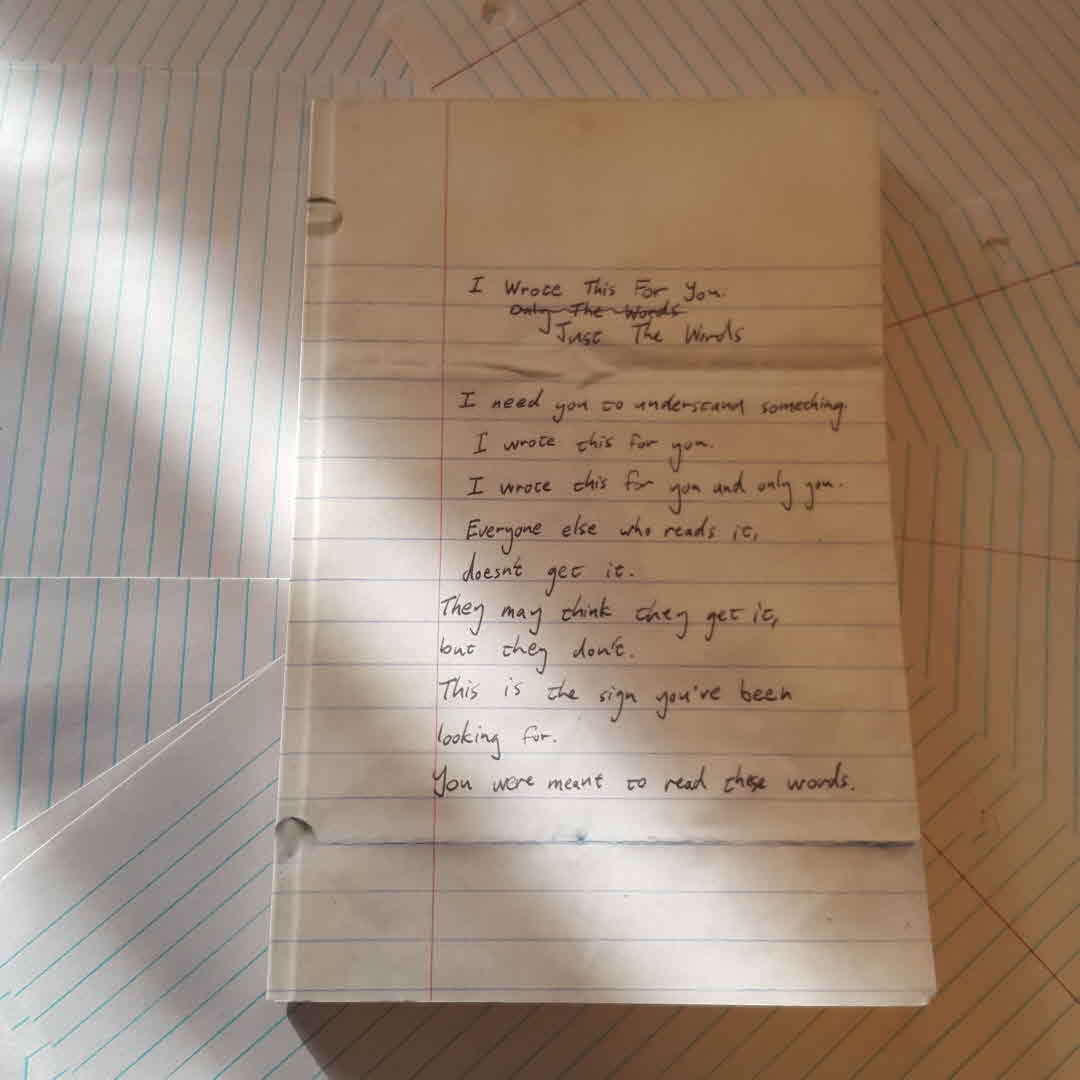 I Wrote This For You.
Only The Words
Just The Words
I need you to understand something.
I wrote this for you.
I wrote this for you and only you.
Everyone else who reads it,
doesn't get it.
They may think they get it,
but they don't.
This is the sign you've been
looking for.
You were meant to read these words.